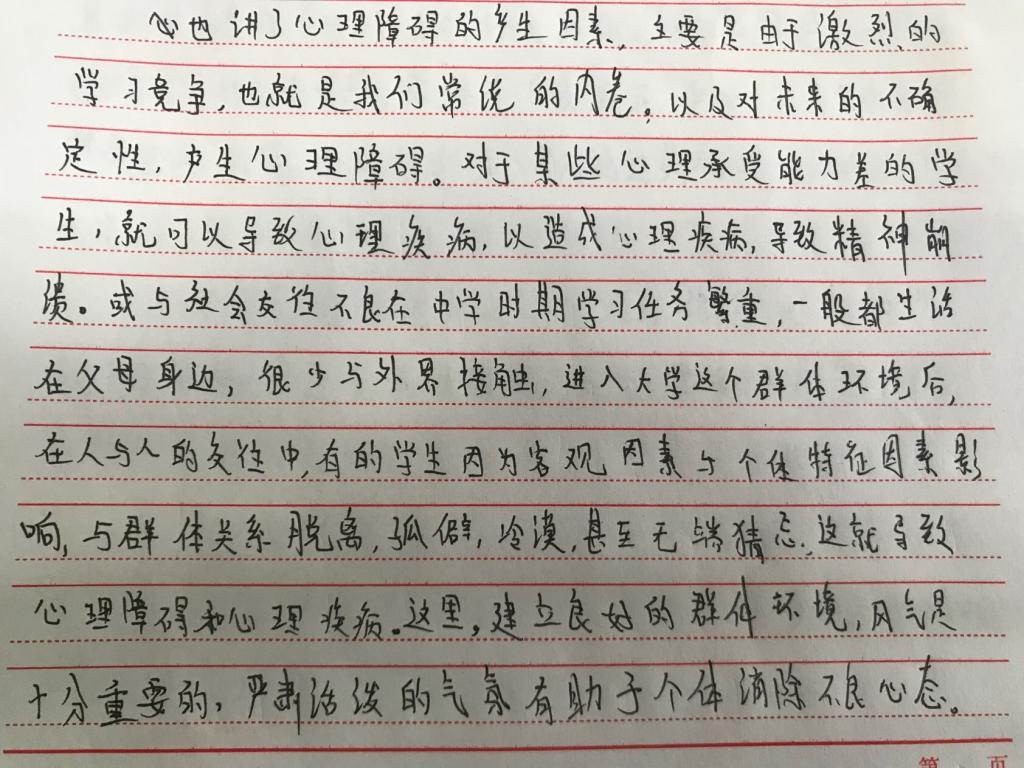 心也讲了心理障碍的产生因素，主要是由于激烈的
学习竞争，也就是我们常说的内卷。以及对未来的不确
定性，产生心理障碍。对于某些心理承受能力差的学
生，就可以导致心理疾病，以造成心理疾病，导致精神崩
溃。或与社会交往不良在中学时期学习任务繁重，一般都生活
在父母身边，很少与外界接触，进入大学这个群体环境后，
在人与人的交往中，有的学生因为客观因素与个体特征因素影
响，与群体关系脱离，孤僻，冷漠，甚至无端猜忌，这就导致
心理障碍和心理疾病。这里，建立良好的群体环境，风气是
十分重要的，严肃活泼的气氛有助于个体消除不良心态。
第 页